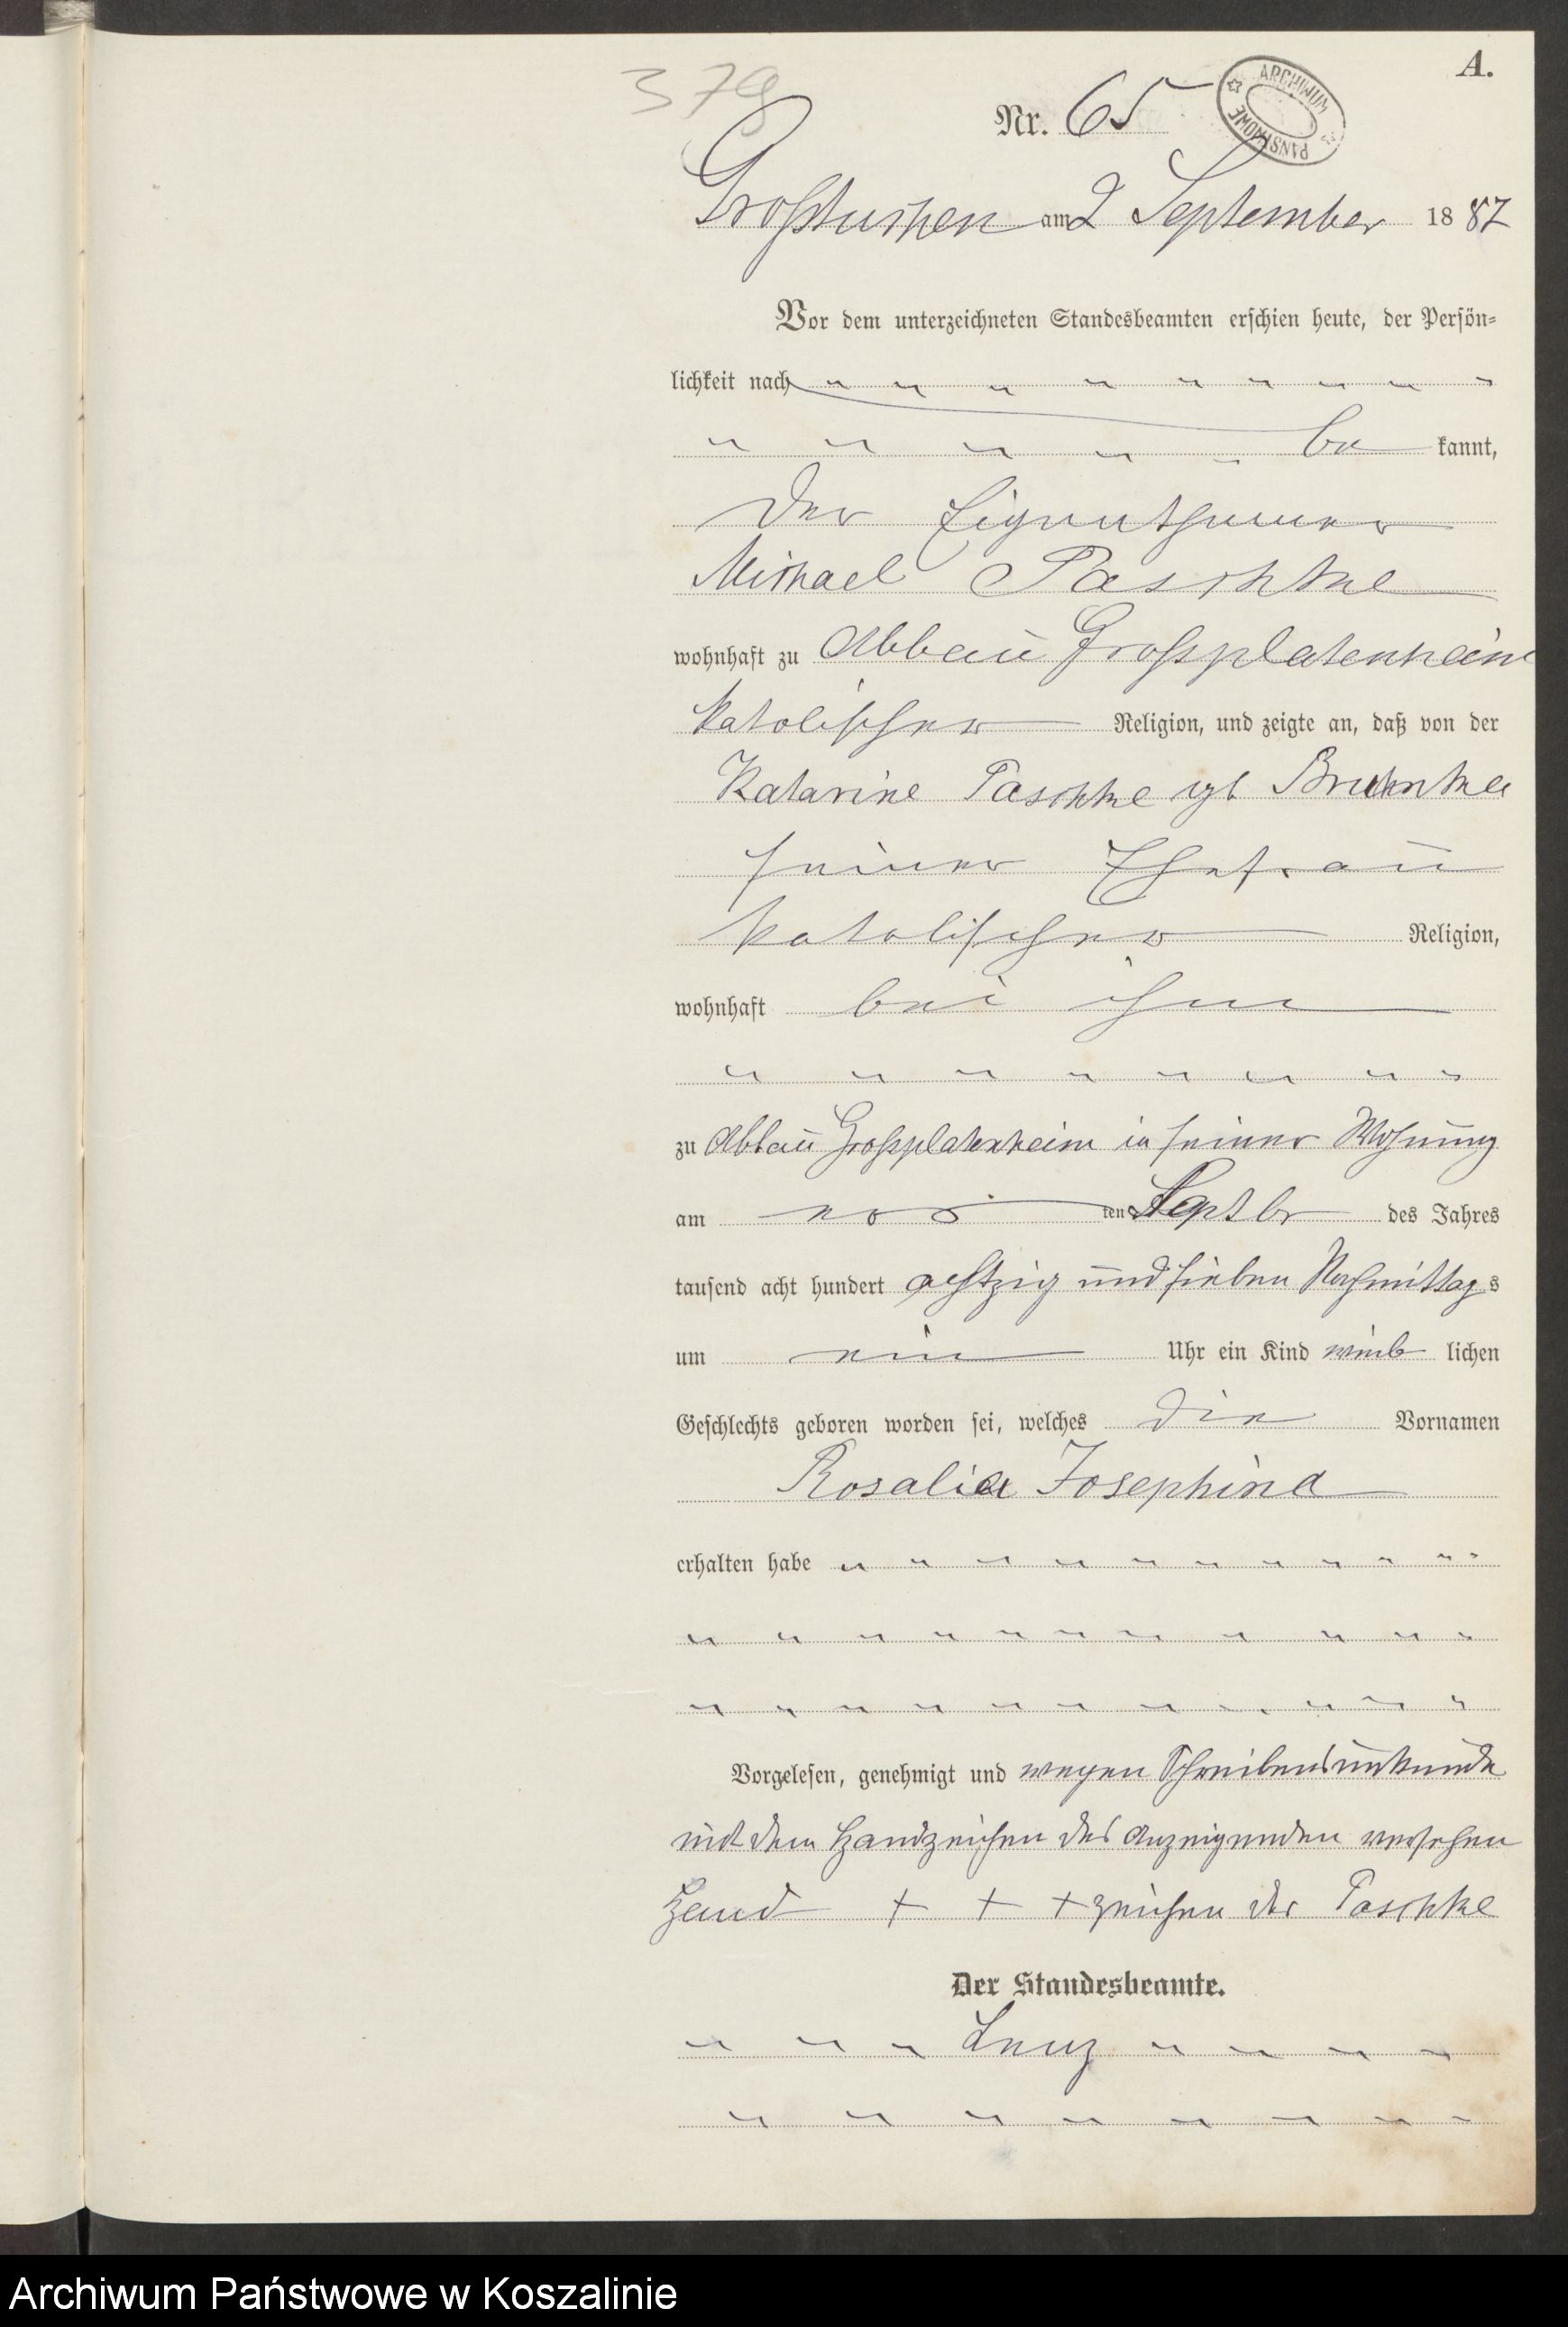 A.
379
Nr. 65
ARCHIWUM PAŃSTWOWE
Großtuchen am 2 September 1887
Vor dem unterzeichneten Standesbeamten erschien heute, der Persön-
lichkeit nach
be kannt,
der Eigenthümer
Michael Paschke
wohnhaft zu Abbau Grossplatenheim
katolischer Religion, und zeigte an, daß von der
Katarine Paschke
seiner Ehefrau
katolischer Religion,
wohnhaft bei ihm
zu Abbau Grossplatenheim in seiner Wohnung
am ten Septbr des Jahres
tausend acht hundert achtzig und sieben Nachmittags
um ein Uhr ein Kind weib lichen
Geschlechts geboren worden sei, welches die Vornamen
Rosalia Josephina
erhalten habe
Vorgelesen, genehmigt und wegen Schreibensunkunde
mit dem Handzeichen des Anzeigenden versehen
Hand + + + zeichen des Paschke
Der Standesbeamte.
Lenz
Archiwum Państwowe w Koszalinie